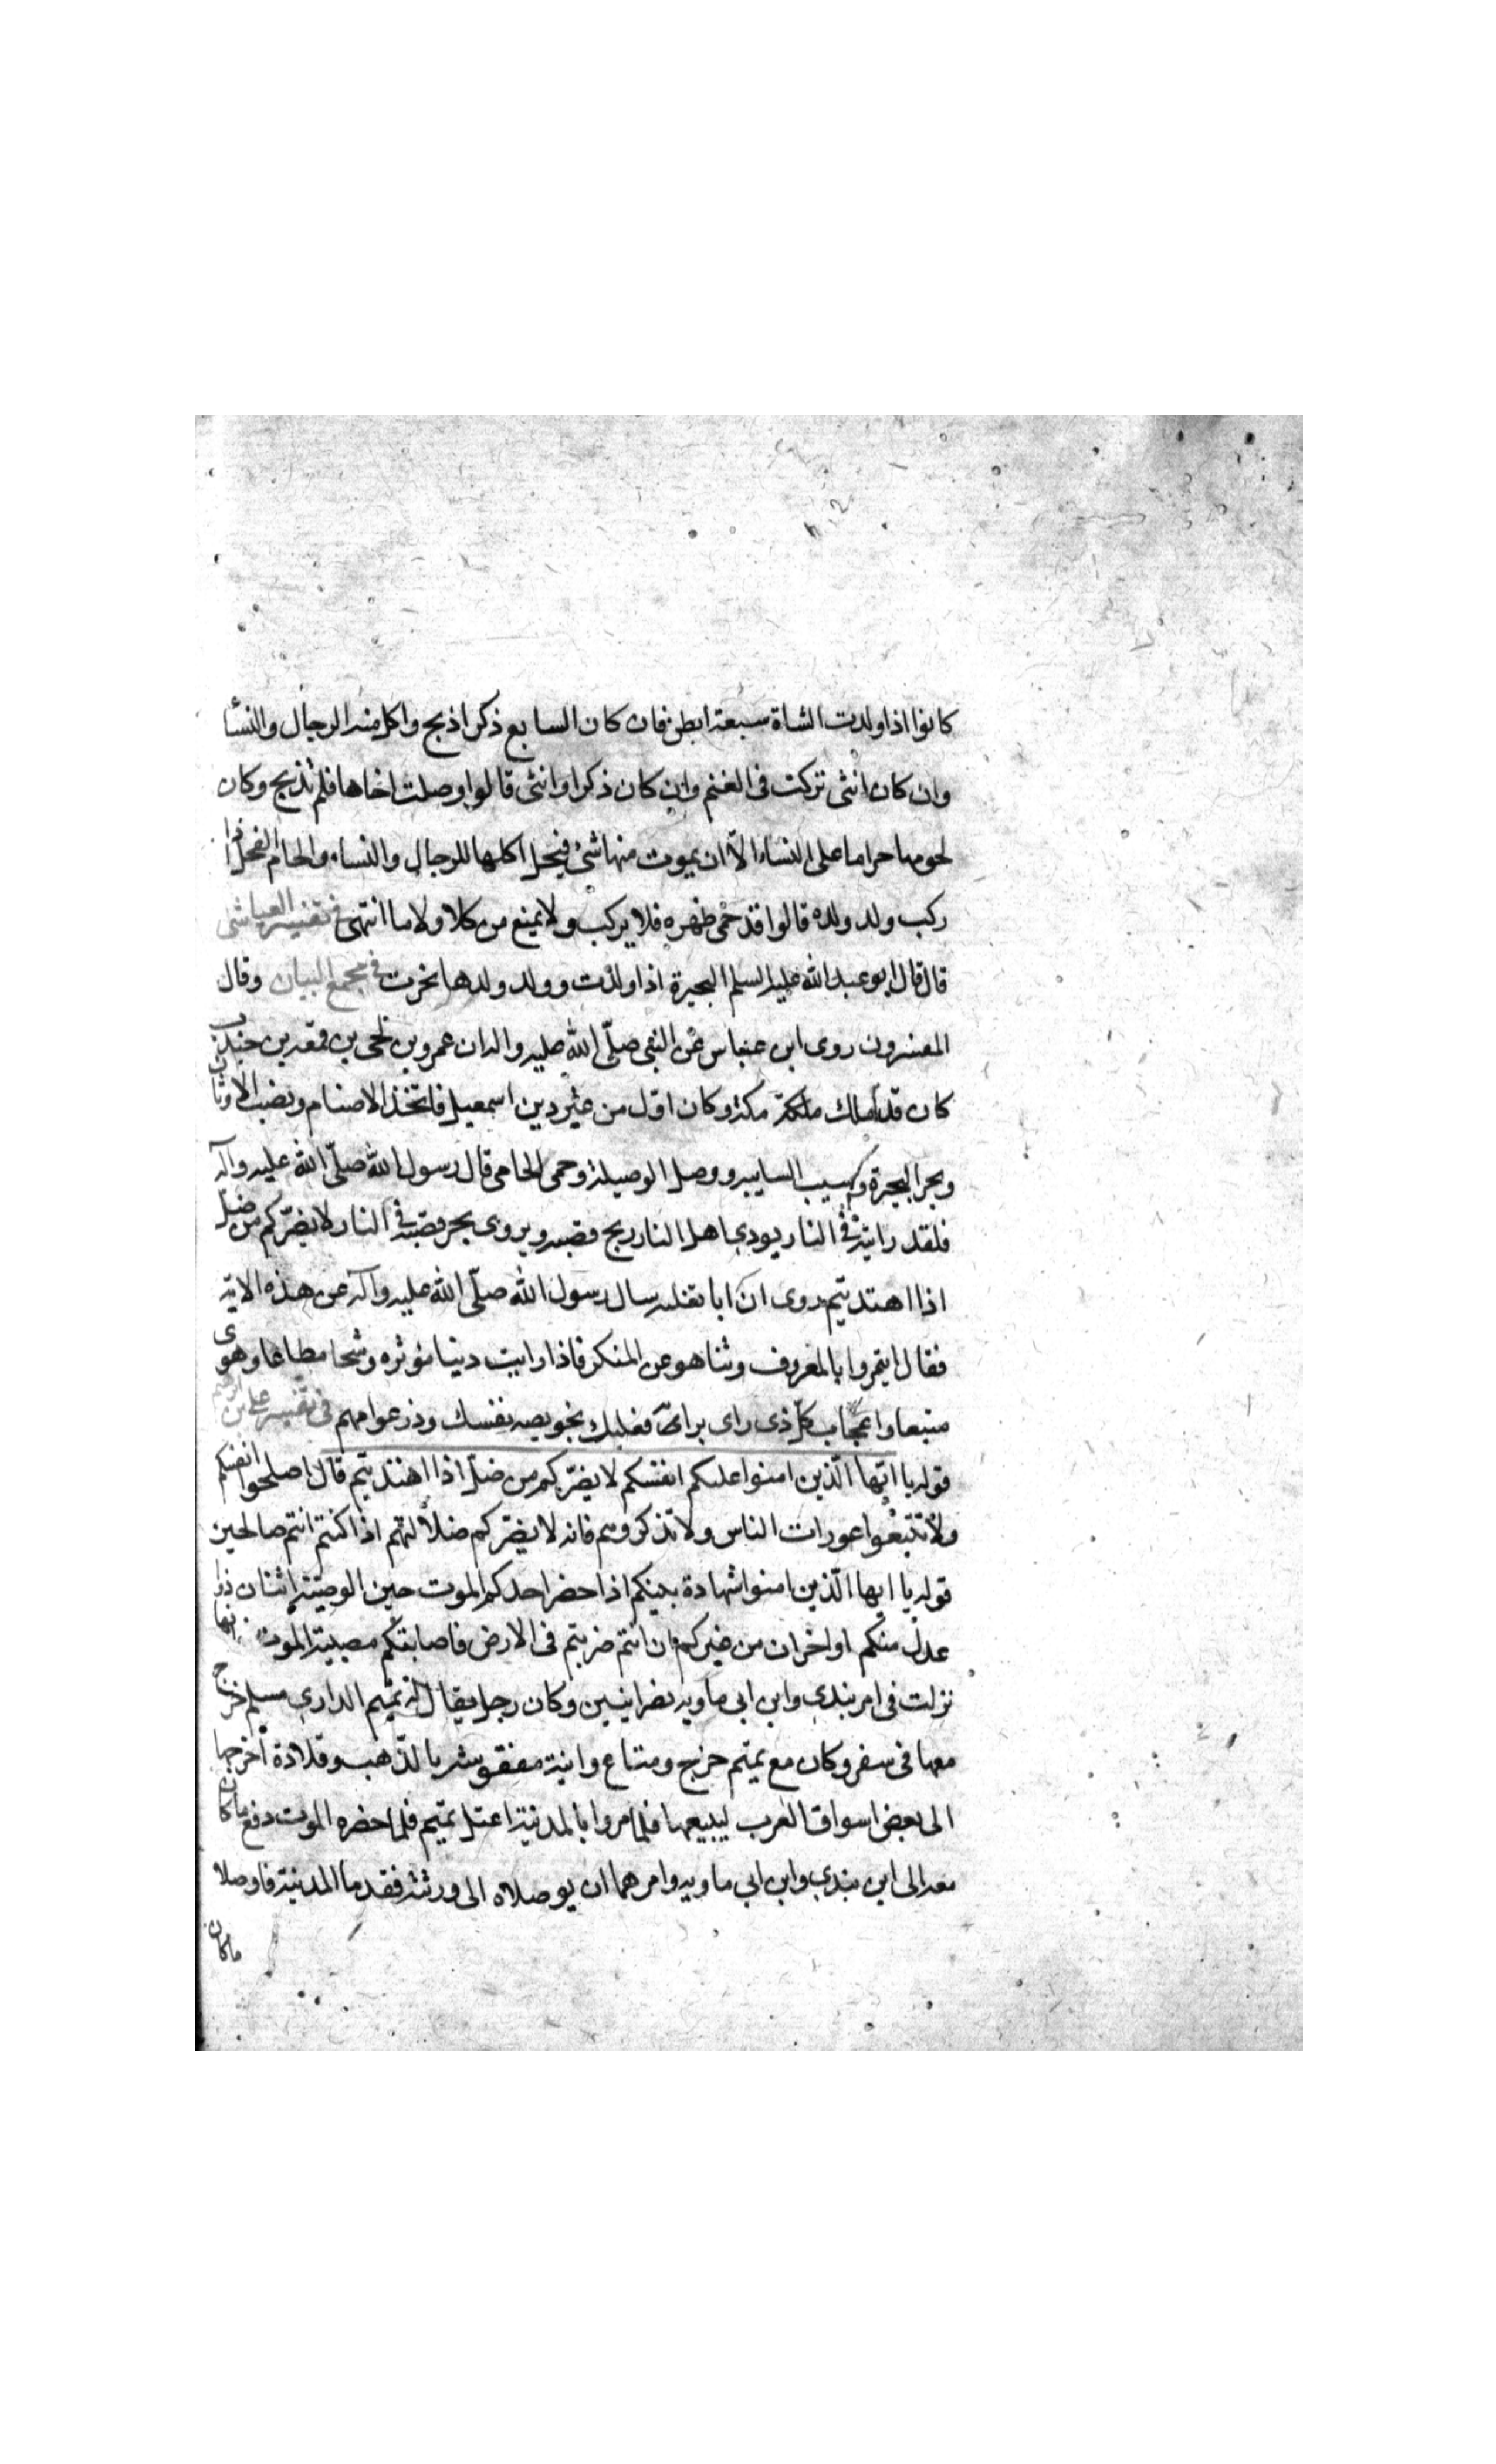 كانوا اذا ولدت الشاة سبعة ابطن فان كان السابع ذكرا ذبح واكل منه الرجال والنسا
وان كان انثى تركت فى الغنم وان كان ذكرا وانثى قالوا وصلت اخاها فلم تذبح وكان
لحومها حراما على النساء الّا ان يموت منها شئ فيحل اكلها للرجال والنساء والحام الفحل اذا
ركب ولد ولده قالوا قد حمى ظهره فلا يركب ولا يمنع من كلا ولا ما انتهى فى تفسير العياشى
قال قال ابو عبد الله عليه السلم البحيرة اذا ولدت وولد ولدها بحرت فى مجمع البيان وقال
المفسرون روى ابن عباس عن النبى صلّى الله عليه واله ان عمرو بن لحى بن قمعه بن خندب
كان قد ملك مكة وكان اوّل من غير دين اسمعيل فاتّخذ الاصنام ونصب الاوثان
وبحر البحيرة وسيب السايبه ووصل الوصيلة وحمى الحامى قال رسول الله صلّى الله عليه واله
فلقد رايته فى النار يودى اهل النار ريح قصبه ويروى يجر قصبه فى النار لا يضرّكم من ضلّ
اذا اهتديتم روى انّ ابا ثعلبه سال رسول الله صلّى الله عليه وآله عن هذه الاية
فقال ايتمروا بالمعروف وتناهو عن المنكر فاذا رايت دنيا مؤثره وشحا مطاعا وهوى
متبعا واعجاب كلّ ذى راى برايه فعليك بخويصه نفسك وذر عوامهم فى تفسير على بن ابرهيم
قوله يا ايّها الّذين امنوا عليكم انفسكم لا يضرّكم من ضلّ اذا اهتديتم قال اصلحوا انفسكم
ولا تتبعوا عورات الناس ولا تذكروهم فانه لا يضرّكم ضلالتهم اذا كنتم انتم صالحين
قوله يا ايها الّذين امنوا شهادة بينكم اذا حضر احدكم الموت حين الوصيّة اثنان ذوا
عدل منكم او اخران من غيركم ان انتم ضربتم فى الارض فاصابتكم مصيبة الموت انها
نزلت فى ابن بندى وابن ابى ماويه نصرانيين وكان رجل يقال له تميم الدارى مسلم خرج
معهما فى سفر وكان مع تميم خرج ومتاع وانية منقوشة بالذّهب وقلادة اخرجها
الى بعض اسواق العرب ليبيعها فلما مروا بالمدينة اعتل تميم فلما حضره الموت دفع ما كان
معه الى ابن بندى وابن ابى ماويه وامرهما ان يوصلاه الى ورثته فقدما المدينة فاوصلا
ما كان